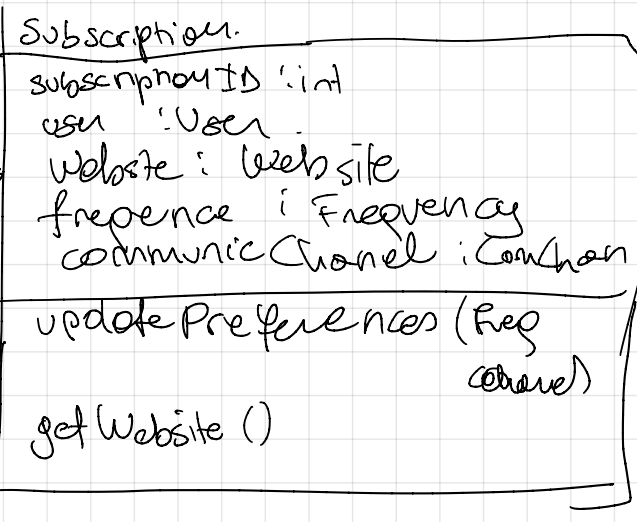 Subscription.
subscriptionID : int
user : User
Website : Website
freqence : Frequency
communicChanel : ComChan
updatePreferences (freq
chanel)
getWebsite ()